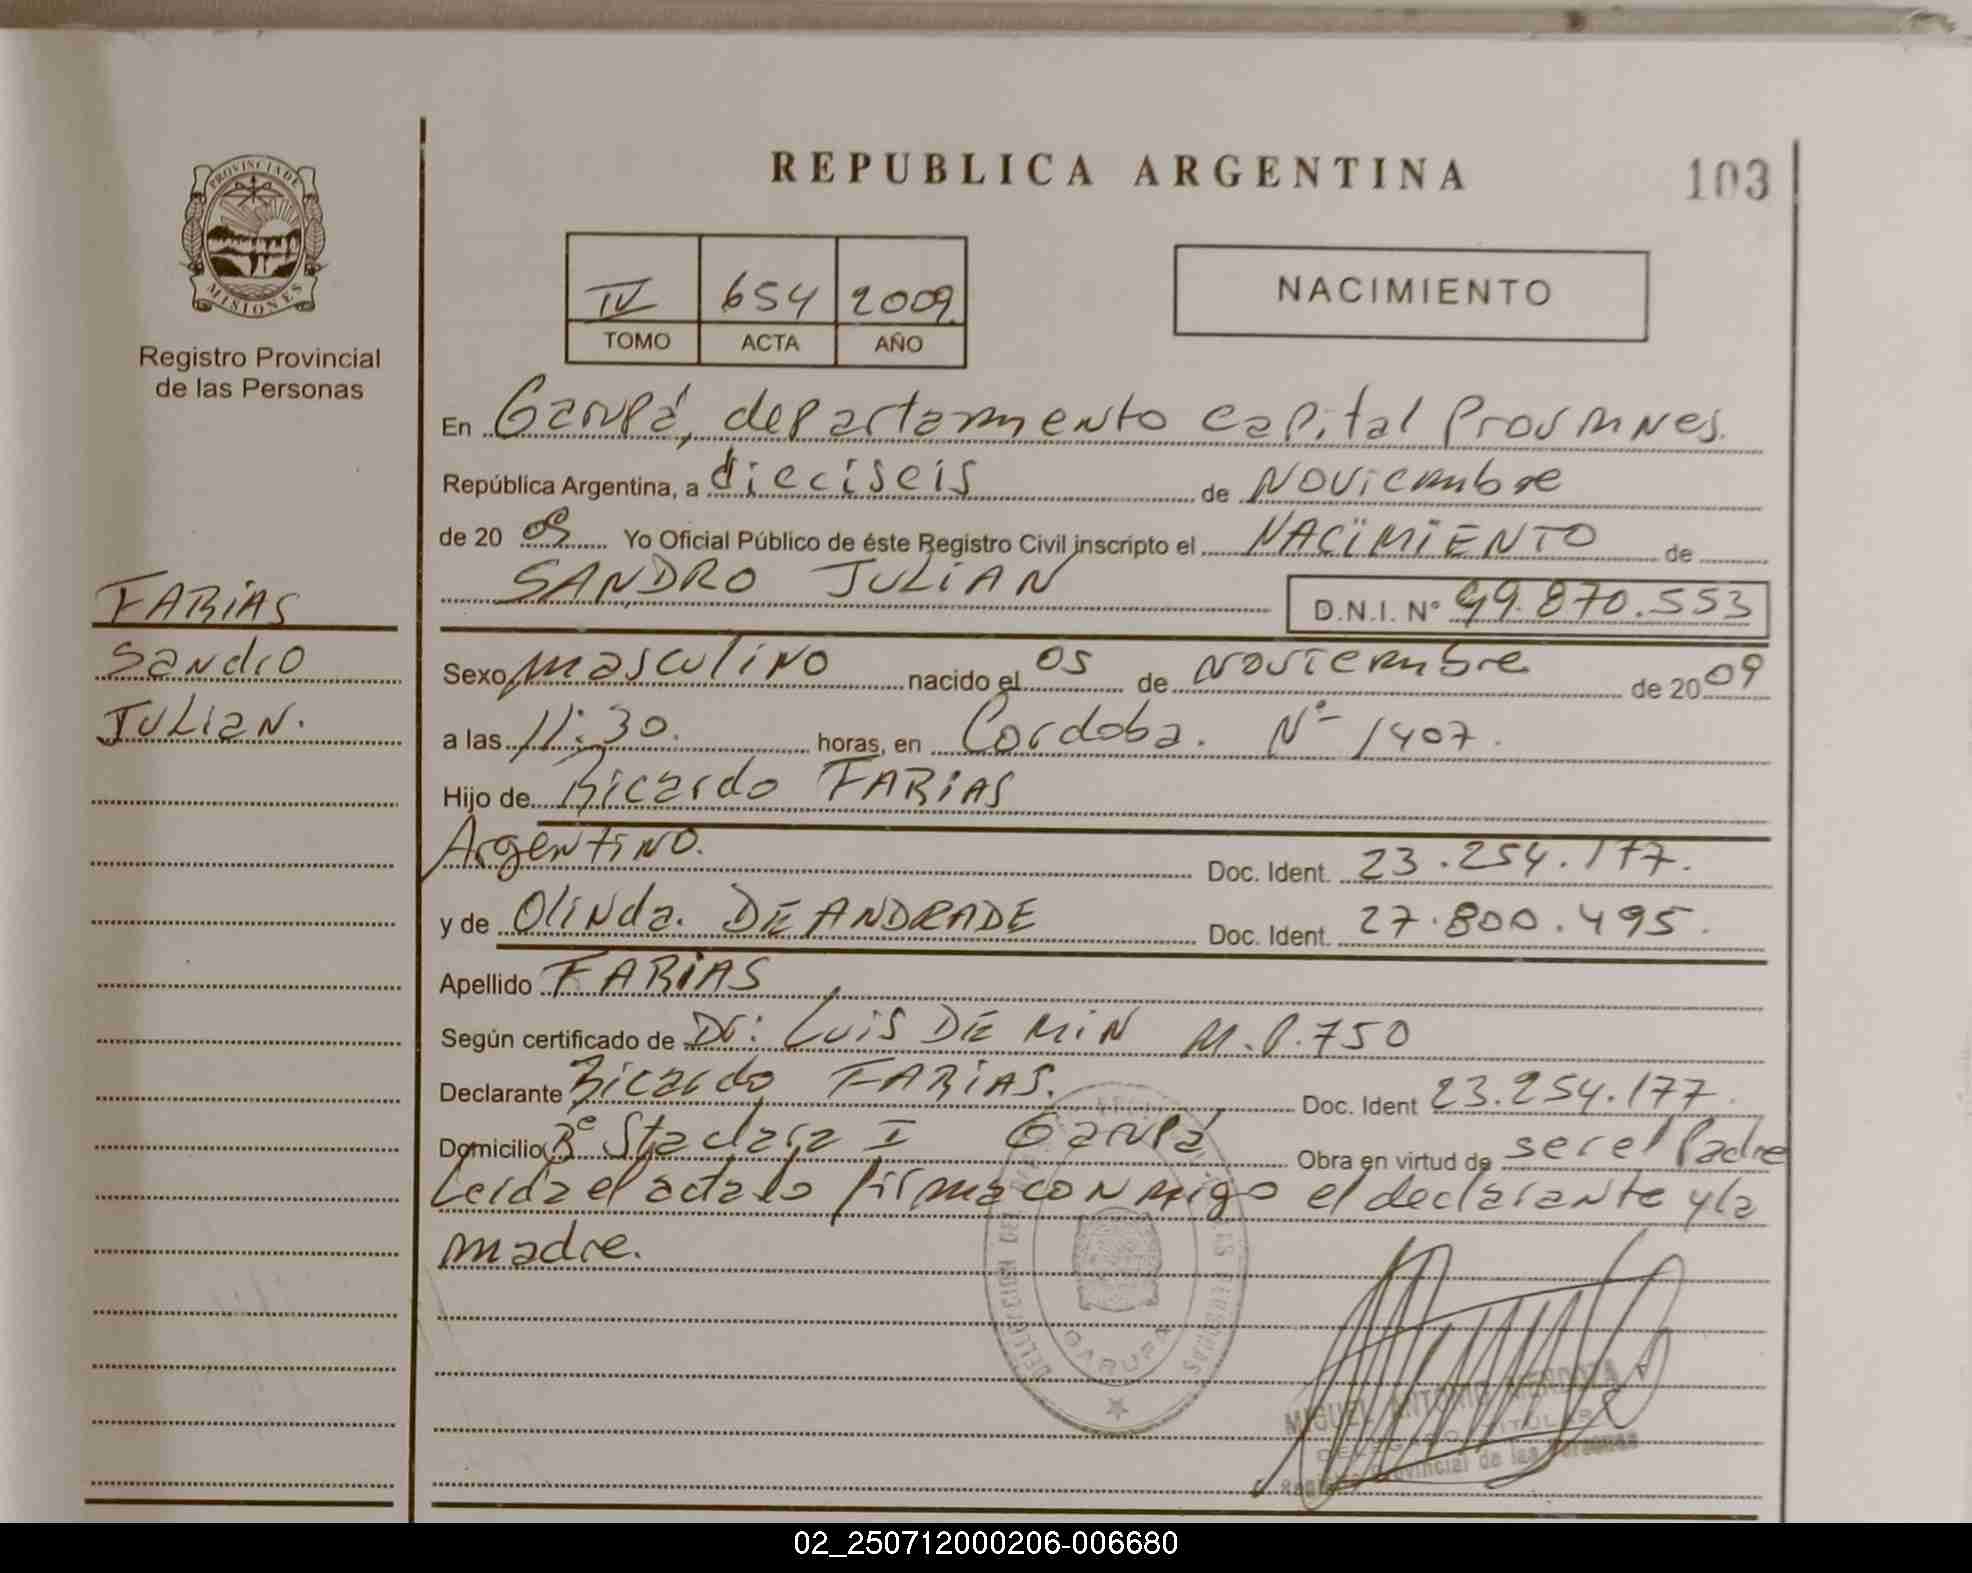 REPUBLICA ARGENTINA
103
PROVINCIA DE
MISIONES
Registro Provincial
de las Personas
IV 654 2009
TOMO ACTA AÑO
NACIMIENTO
En Garupá, departamento Capital Prov Mnes.
República Argentina, a dieciseis de Noviembre
de 20 09 Yo Oficial Público de éste Registro Civil inscripto el NACIMIENTO de
SANDRO JULIAN D.N.I. Nº 49.870.553
FARIAS
Sandro
JULIAN.
Sexo masculino nacido el 05 de noviembre de 20 09
a las 11:30. horas, en Cordoba. Nº 1407.
Hijo de Ricardo FARIAS
Argentino. Doc. Ident. 23.254.177.
y de Olinda. DE ANDRADE Doc. Ident. 27.800.495.
Apellido FARIAS
Según certificado de Dr: Luis DE MIN M.P.750
Declarante Ricardo FARIAS. Doc. Ident 23.254.177.
Domicilio Bº Sta clara I Garupá Obra en virtud de ser el Padre
Leida el acta la firma conmigo el declarante y la
madre.
DELEGACION DEL REGISTRO PROVINCIAL DE LAS PERSONAS
GARUPA
MIGUEL ANTONIO MENDOZA
DELEGADO TITULAR
Registro Provincial de las Personas
02_250712000206-006680